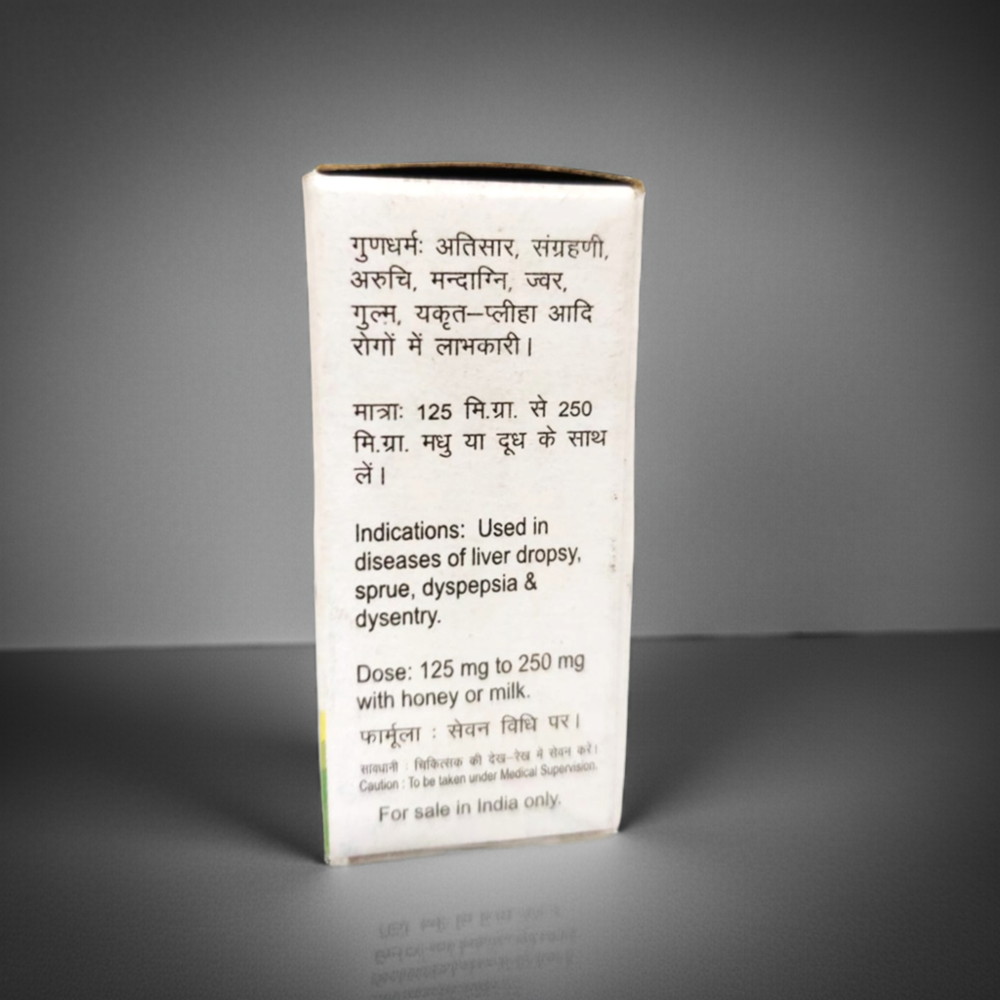 गुणधर्मः अतिसार, संग्रहणी,
अरुचि, मन्दाग्नि, ज्वर,
गुल्म, यकृत–प्लीहा आदि
रोगों में लाभकारी।
मात्राः 125 मि.ग्रा. से 250
मि.ग्रा. मधु या दूध के साथ
लें।
Indications: Used in
diseases of liver dropsy,
sprue, dyspepsia &
dysentry.
Dose: 125 mg to 250 mg
with honey or milk.
फार्मूला : सेवन विधि पर।
सावधानी : चिकित्सक की देख–रेख में सेवन करें।
Caution : To be taken under Medical Supervision.
For sale in India only.